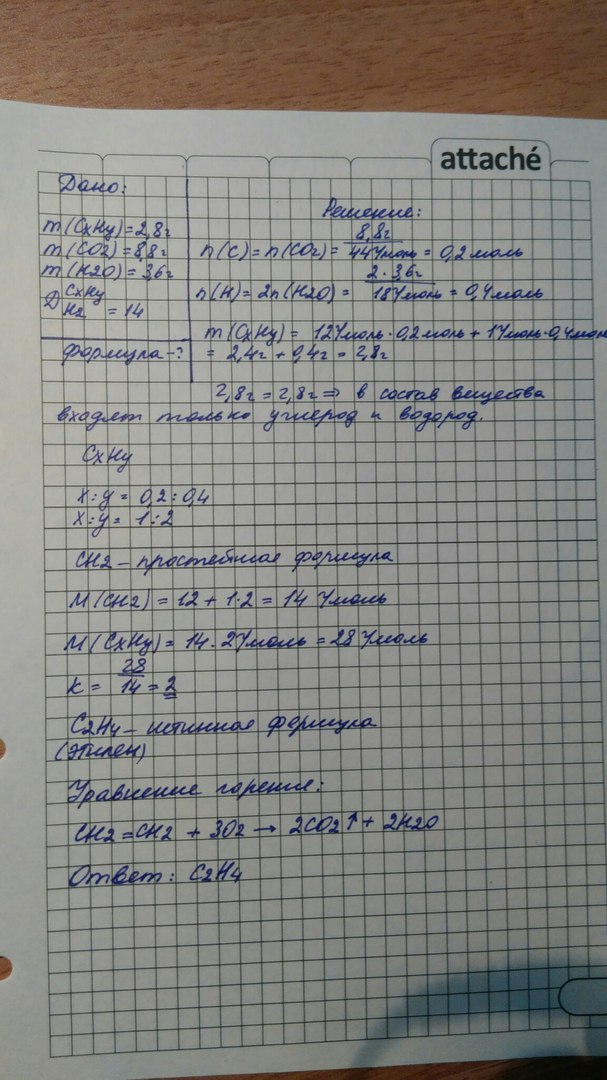 attaché
Дано:
m(CxHy)=2,8г
m(CO2)=8,8г
m(H2O)=3,6г
D CxHy
H2 = 14
формула-?
Решение:
8,8г
n(C)=n(CO2)= 44г/моль = 0,2 моль
2·3,6г
n(H)=2n(H2O)= 18г/моль = 0,4моль
m(CxHy)= 12г/моль·0,2моль + 1г/моль·0,4моль
= 2,4г + 0,4г = 2,8г
2,8г=2,8г ⇒ в состав вещества
входят только углерод и водород.
CxHy
x:y= 0,2:0,4
x:y= 1:2
CH2 – простейшая формула
M(CH2) = 12 + 1·2 = 14 г/моль
M(CxHy)= 14·2г/моль = 28г/моль
28
k= 14 = 2
C2H4 – истинная формула
(этилен)
Уравнение горения:
CH2=CH2 + 3O2 → 2CO2↑ + 2H2O
Ответ: C2H4